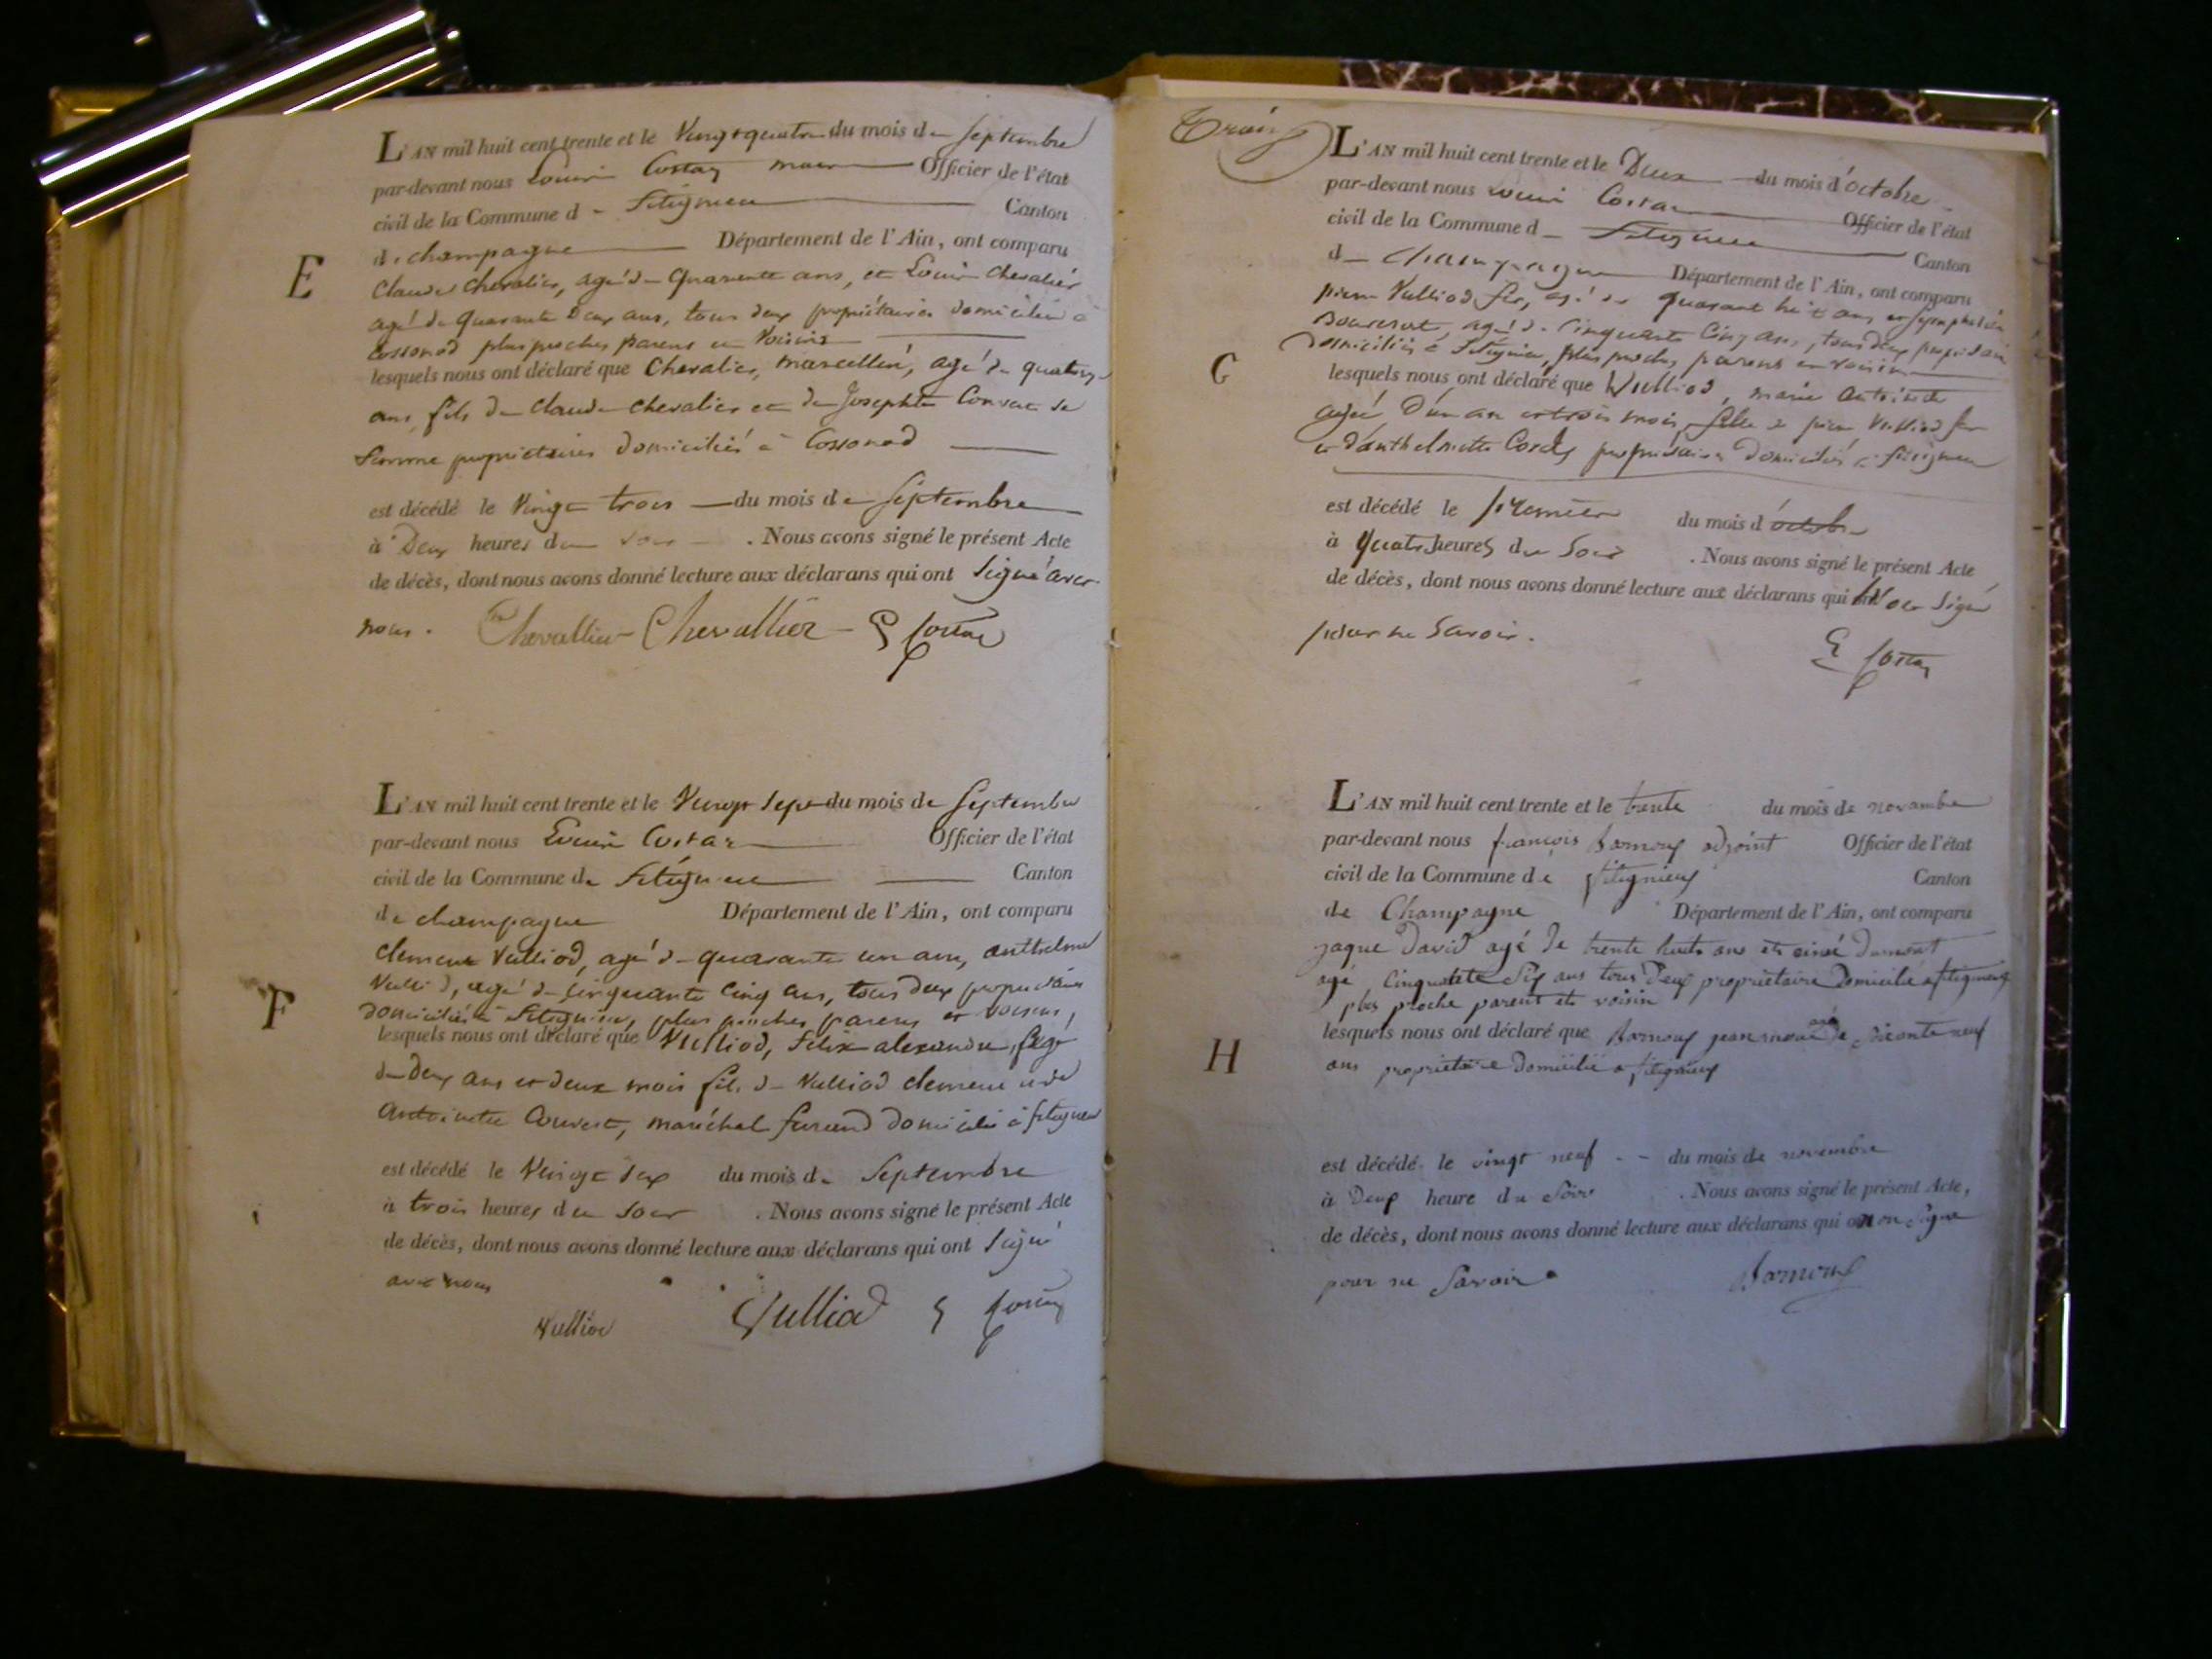 L'AN mil huit cent trente et le Vingt quatre du mois de Septembre
par-devant nous Louis Costaz maire Officier de l'état
civil de la Commune d Fitignieu Canton
de champagne Département de l'Ain, ont comparu
E
Claude Chevalier, agé de Quarente ans, et Louis Chevalier
agé de Quarante Deux ans, tous deux propriétaires domiciliés à
Cossonod plus proches parens et Voisins
lesquels nous ont déclaré que Chevalier, marcellin, agé de quatorze
ans, fils de Claude Chevalier et de Josephte sa
femme propriétaires domiciliés à Cossonod
est décédé le Vingt trois du mois de Septembre
à Deux heures du soir . Nous avons signé le présent Acte
de décès, dont nous avons donné lecture aux déclarans qui ont Signé avec
nous. Chevallier Chevallier Costaz
L'AN mil huit cent trente et le Vingt Sept du mois de Septembre
par-devant nous Louis Costaz Officier de l'état
civil de la Commune de Fitignieu Canton
de champagne Département de l'Ain, ont comparu
clement Vulliod, agé de quarante un ans, anthelme
Vulliod, agé de Cinquante Cinq ans, tous deux propriétaires
F
domiciliés à Fitignieu, plus proches parens et voisins,
lesquels nous ont déclaré que Vulliod, Félix alexandre, agé
de Deux ans et deux mois fils de Vulliod clement et de
Antoinette Couvert, maréchal ferrand domicilié à fitignieu
est décédé le Vingt Six du mois de Septembre
à trois heures du Soir . Nous avons signé le présent Acte
de décès, dont nous avons donné lecture aux déclarans qui ont Signé
avec nous
Vulliod Vulliod Costaz
L'AN mil huit cent trente et le Deux du mois d'octobre
par-devant nous Louis Costaz Officier de l'état
civil de la Commune d Fitignieu Canton
d Champagne Département de l'Ain, ont comparu
pierre Vulliod fer, agé de quarant huit ans, et Symphorien
agé de Cinquante Cinq ans, tous deux propriétaires
domiciliés à Fitignieu, plus proches parens et voisins
G
lesquels nous ont déclaré que Vulliod, marie antoinette
agée D'un an et trois mois, fille de pierre Vulliod fer
et d'anthelmette propriétaires domiciliés à fitignieu
est décédé le premier du mois d'octobre
à quatre heures du Soir . Nous avons signé le présent Acte
de décès, dont nous avons donné lecture aux déclarans qui Non Signé
pour ne Savoir.
Costaz
L'AN mil huit cent trente et le trente du mois de novembre
par-devant nous françois adjoint Officier de l'état
civil de la Commune de fitignieux Canton
de Champagne Département de l'Ain, ont comparu
jaque David agé de trente huits ans et aimé Dumont
agé Cinquante Six ans tous Deux propriétaire Domicilié a fitignieux
plus proche parent et voisin
lesquels nous ont déclaré que jean agé de neuf
H
ans propriétaire Domicilié a fitignieux
est décédé le vingt neuf du mois de novembre
à Deux heure du Soir . Nous avons signé le présent Acte,
de décès, dont nous avons donné lecture aux déclarans qui on non Signé
pour ne Savoir